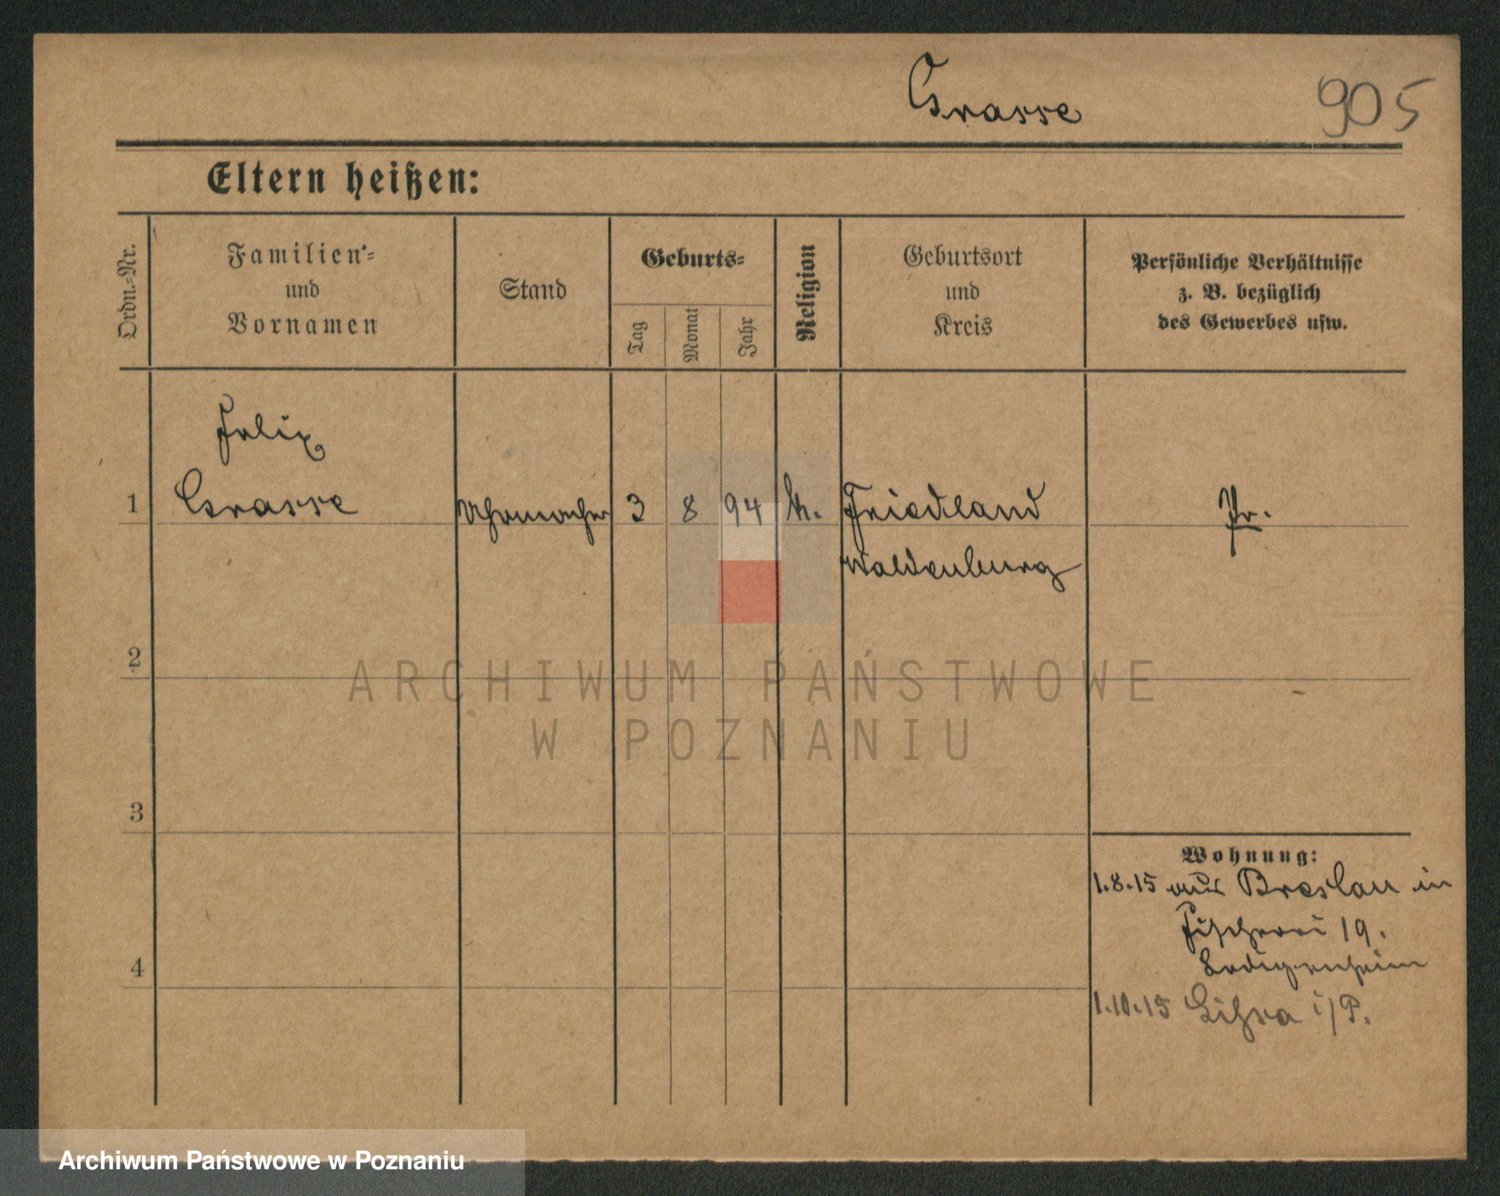 Grasse
905
Eltern heißen:
Ordn.-Nr.
Familien-
und
Vornamen
Stand
Geburts-
Tag
Monat
Jahr
Religion
Geburtsort
und
Kreis
Persönliche Verhältnisse
z. B. bezüglich
des Gewerbes usw.
Felix
1 Grasse Uhrmacher 3 8 94 k. Friedland Pr.
Waldenburg
2
3
4
Wohnung:
1.8.15 aus Breslau in
Fischerei 19.
Ledigenheim
1.10.15 Lissa i/P.
ARCHIWUM PAŃSTWOWE
W POZNANIU
Archiwum Państwowe w Poznaniu